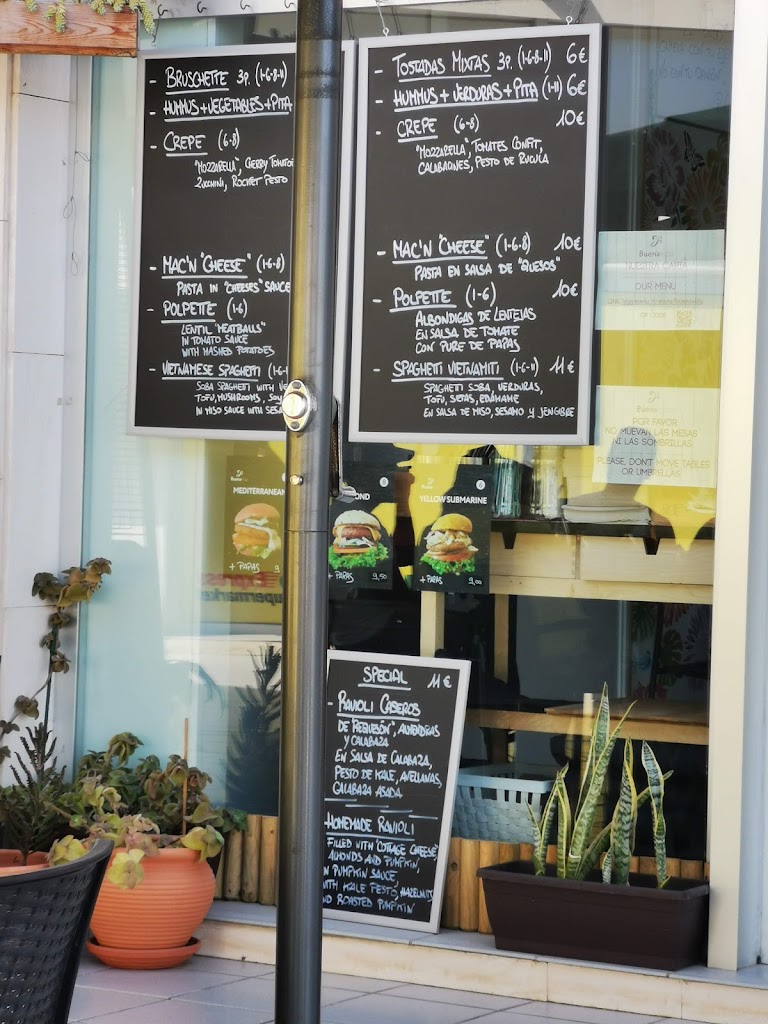 - BRUSCHETTE 3P. (1-6-8-11)
- HUMMUS + VEGETABLES + PITA
- CREPE (6-8)
"MOZZARELLA", CHERRY TOMATOE
ZUCCHINI, ROCKET PESTO
- MAC'N "CHEESE" (1-6-8)
PASTA IN "CHEESES" SAUCE
- POLPETTE (1-6)
LENTIL "MEATBALLS"
IN TOMATO SAUCE
WITH MASHED POTATOES
- VIETNAMESE SPAGHETTI (1-6-1
SOBA SPAGHETTI WITH VE
TOFU, MUSHROOMS, SOY
IN MISO SAUCE WITH SES
- TOSTADAS MIXTAS 3P. (1-6-8-11) 6€
- HUMMUS + VERDURAS + PITA (1-11) 6€
- CREPE (6-8) 10€
"MOZZARELLA", TOMATES CONFIT,
CALABACINES, PESTO DE RUCULA
- MAC'N "CHEESE" (1-6-8) 10€
PASTA EN SALSA DE "QUESOS"
- POLPETTE (1-6) 10€
ALBONDIGAS DE LENTEJAS
EN SALSA DE TOMATE
CON PURE DE PAPAS
- SPAGHETTI VIETNAMITI (1-6-11) 11€
SPAGHETTI SOBA, VERDURAS,
TOFU, SETAS, EDAMAME
EN SALSA DE MISO, SESAMO Y JENGIBRE
Buena
NUESTRA CARTA
OUR MENU
QR CODE
Buena
POR FAVOR
NO MUEVAN LAS MESAS
NI LAS SOMBRILLAS
PLEASE, DON'T MOVE TABLES
OR UMBRELLAS
Buena
MEDITERRANEAN
+ PAPAS
OND
+ PAPAS 9,50
Buena
YELLOW SUBMARINE
+ PAPAS 9,00
Express
upermarke
SPECIAL 11€
- RAVIOLI CASEROS
DE "REQUESÓN", ALMENDRAS
Y CALABAZA
EN SALSA DE CALABAZA,
PESTO DE KALE, AVELLANAS,
CALABAZA ASADA
HOMEMADE RAVIOLI
FILLED WITH "COTTAGE CHEESE",
ALMONDS AND PUMPKIN,
IN PUMPKIN SAUCE,
WITH KALE PESTO, HAZELNUTS
AND ROASTED PUMPKIN